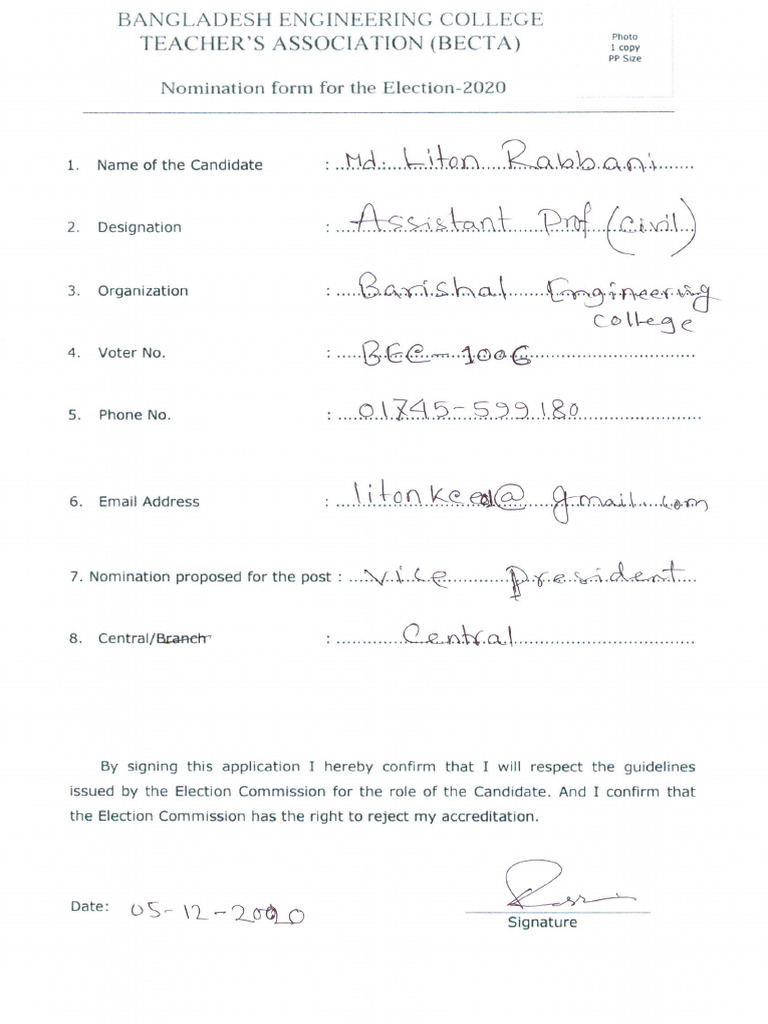 BANGLADESH ENGINEERING COLLEGE
TEACHER'S ASSOCIATION (BECTA)
Photo
1 copy
PP Size
Nomination form for the Election-2020
1. Name of the Candidate : Md. Liton Rabbani
2. Designation : Assistant Prof (Civil)
3. Organization : Barishal Engineering
College
4. Voter No. : BEC-1006
5. Phone No. : 01745-599180
6. Email Address : @gmail.com
7. Nomination proposed for the post : Vice President
8. Central/Branch : Central
By signing this application I hereby confirm that I will respect the guidelines
issued by the Election Commission for the role of the Candidate. And I confirm that
the Election Commission has the right to reject my accreditation.
Date: 05-12-2020
Signature